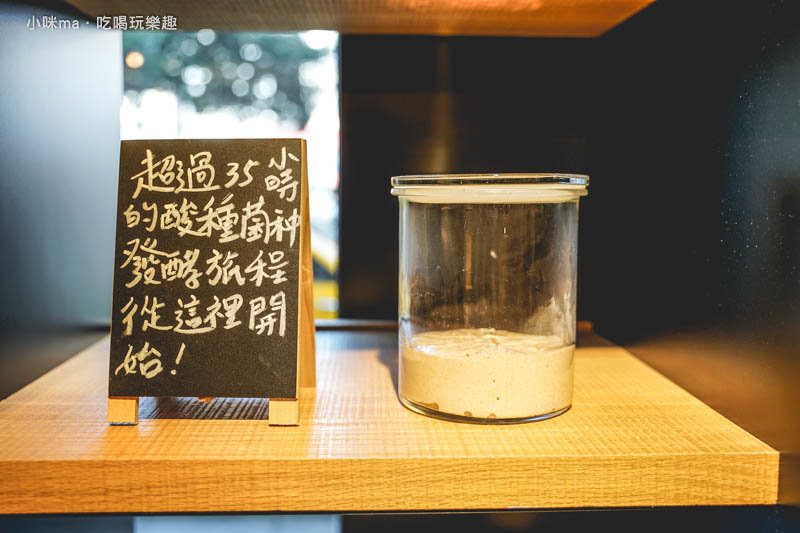 小咪ma·吃喝玩樂趣
超過35小時
的酸種菌种
發酵旅程
從這裡開
始!